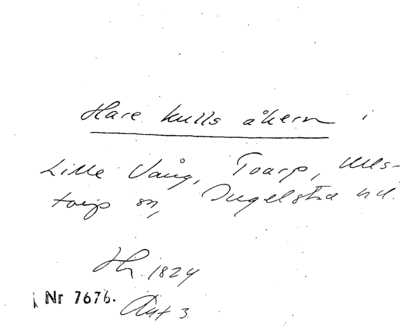 Hare kulls åkern i
Lille Vång, Toarp, Ulls-
torp sn, Ingelstad hd.
H. 1824
Nr 7676.
Akt 3